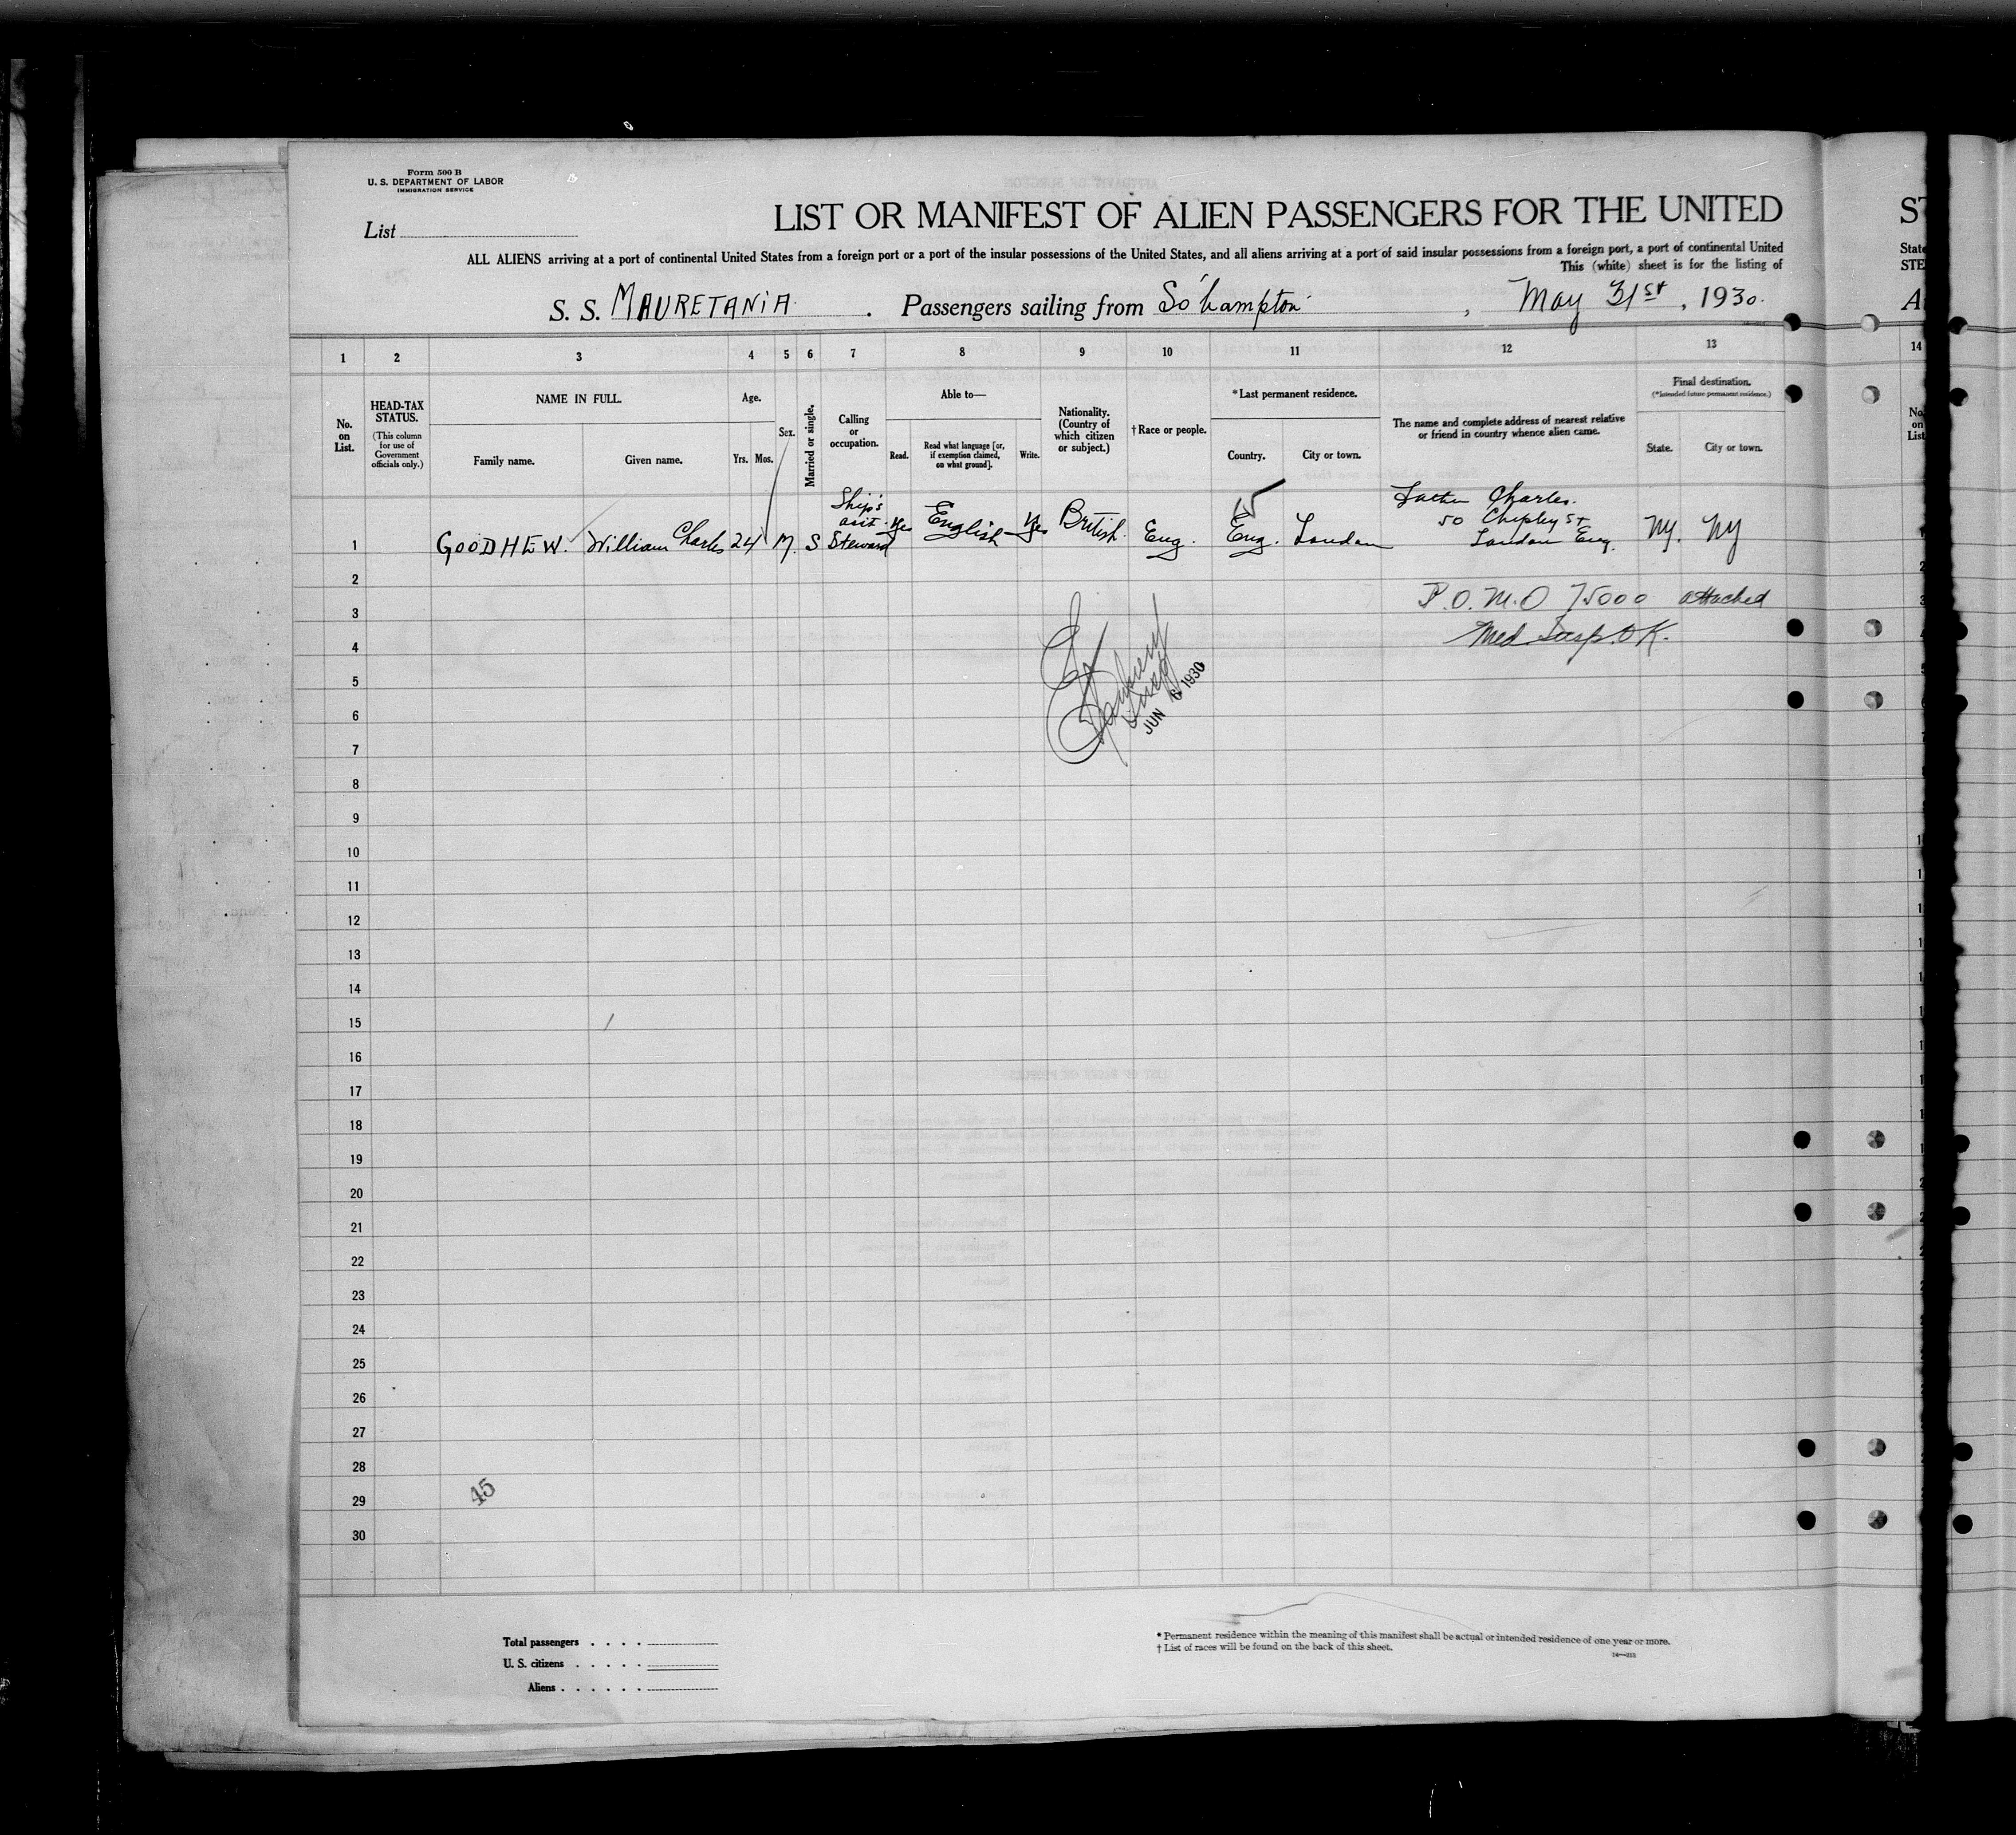 Form 500 B
U. S. DEPARTMENT OF LABOR
IMMIGRATION SERVICE
List
LIST OR MANIFEST OF ALIEN PASSENGERS FOR THE UNITED
ALL ALIENS arriving at a port of continental United States from a foreign port or a port of the insular possessions of the United States, and all aliens arriving at a port of said insular possessions from a foreign port, a port of continental United
This (white) sheet is for the listing of
S. S. MAURETANIA. Passengers sailing from So'hampton, May 31st, 1930.
1 2 3 4 5 6 7 8 9 10 11 12 13
No. on List.
HEAD-TAX STATUS.
(This column for use of Government officials only.)
NAME IN FULL.
Family name. Given name.
Age.
Yrs. Mos.
Sex.
Married or single.
Calling or occupation.
Able to—
Read. Read what language [or, if exemption claimed, on what ground]. Write.
Nationality. (Country of which citizen or subject.)
† Race or people.
* Last permanent residence.
Country. City or town.
The name and complete address of nearest relative or friend in country whence alien came.
Final destination.
(* Intended future permanent residence.)
State. City or town.
1 GOODHEW. William Charles 24 M. S Ship's asst. Steward Yes English Yes British. Eng. Eng. London Father Charles. 50 Chipley St London Eng. NY. NY
2
3 P.O. M.O 75000 attached
4 Med Insp. OK.
5
6
JUN 6 1930
7
8
9
10
11
12
13
14
15
16
17
18
19
20
21
22
23
24
25
26
27
28
29
30
45
Total passengers
U. S. citizens
Aliens
* Permanent residence within the meaning of this manifest shall be actual or intended residence of one year or more.
† List of races will be found on the back of this sheet.
14
State
STE
No. on List